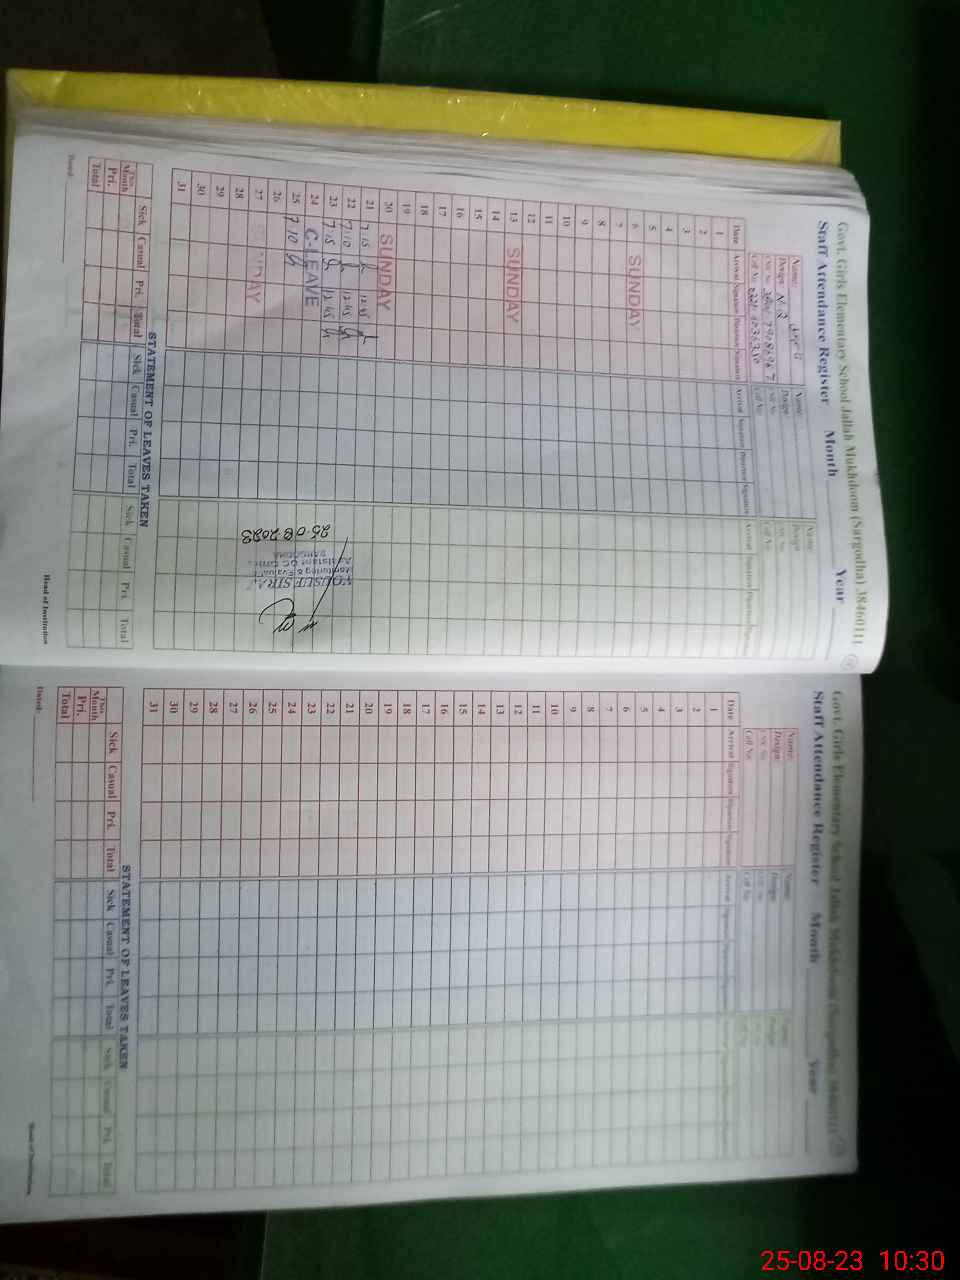 Govt. Girls Elementary School Jallah Mukhdoom (Sargodha) 38460111
Staff Attendance Register Month Year
Name: Name: Name:
Design: Design: Design:
CNIC No. CNIC No. CNIC No.
Cell No. Cell No. Cell No.
Date Arrival Signature Departure Signature Arrival Signature Departure Signature Arrival Signature Departure Signature
1
2
3
4
5
6 SUNDAY
7
8
9
10
11
12
13 SUNDAY
14
15
16
17
18
19
20 SUNDAY
21 7:15 12:45
22 7:10 12:45
23 7:15 12:45
24 C-LEAVE
25 7:10
26
27 SUNDAY
28
29
30
31
25.08.2023
Monitoring & Evaluation
Assistant
SARGODHA
STATEMENT OF LEAVES TAKEN
Sick Casual Pri. Total Sick Casual Pri. Total Sick Casual Pri. Total
This Month
Pri.
Total
Dated: Head of Institution
Govt. Girls Elementary School Jallah Mukhdoom (Sargodha) 38460111
Staff Attendance Register Month Year
Name: Name: Name:
Design: Design: Design:
CNIC No. CNIC No. CNIC No.
Cell No. Cell No. Cell No.
Date Arrival Signature Departure Signature Arrival Signature Departure Signature Arrival Signature Departure Signature
1
2
3
4
5
6
7
8
9
10
11
12
13
14
15
16
17
18
19
20
21
22
23
24
25
26
27
28
29
30
31
STATEMENT OF LEAVES TAKEN
Sick Casual Pri. Total Sick Casual Pri. Total Sick Casual Pri. Total
This Month
Pri.
Total
Dated: Head of Institution
25-08-23 10:30